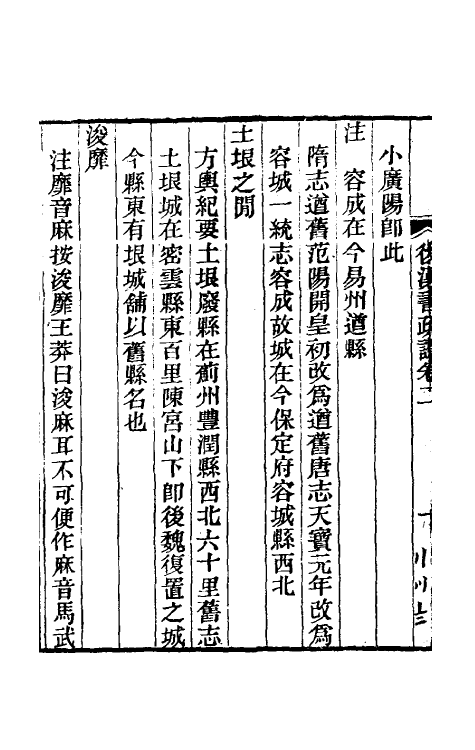 小廣陽卽此
注　容成在今易州遒縣
隋志遒舊范陽開皇初改爲遒舊唐志天寶元年改爲
容城一統志容成故城在今保定府容城縣西北
土垠之閒
方輿紀要土垠廢縣在薊州豐潤縣西北六十里舊志
土垠城在密雲縣東百里陳宮山下卽後魏復置之城
今縣東有垠城舖以舊縣名也
浚靡
注靡音麻按浚靡王莽曰浚麻耳不可便作麻音馬武